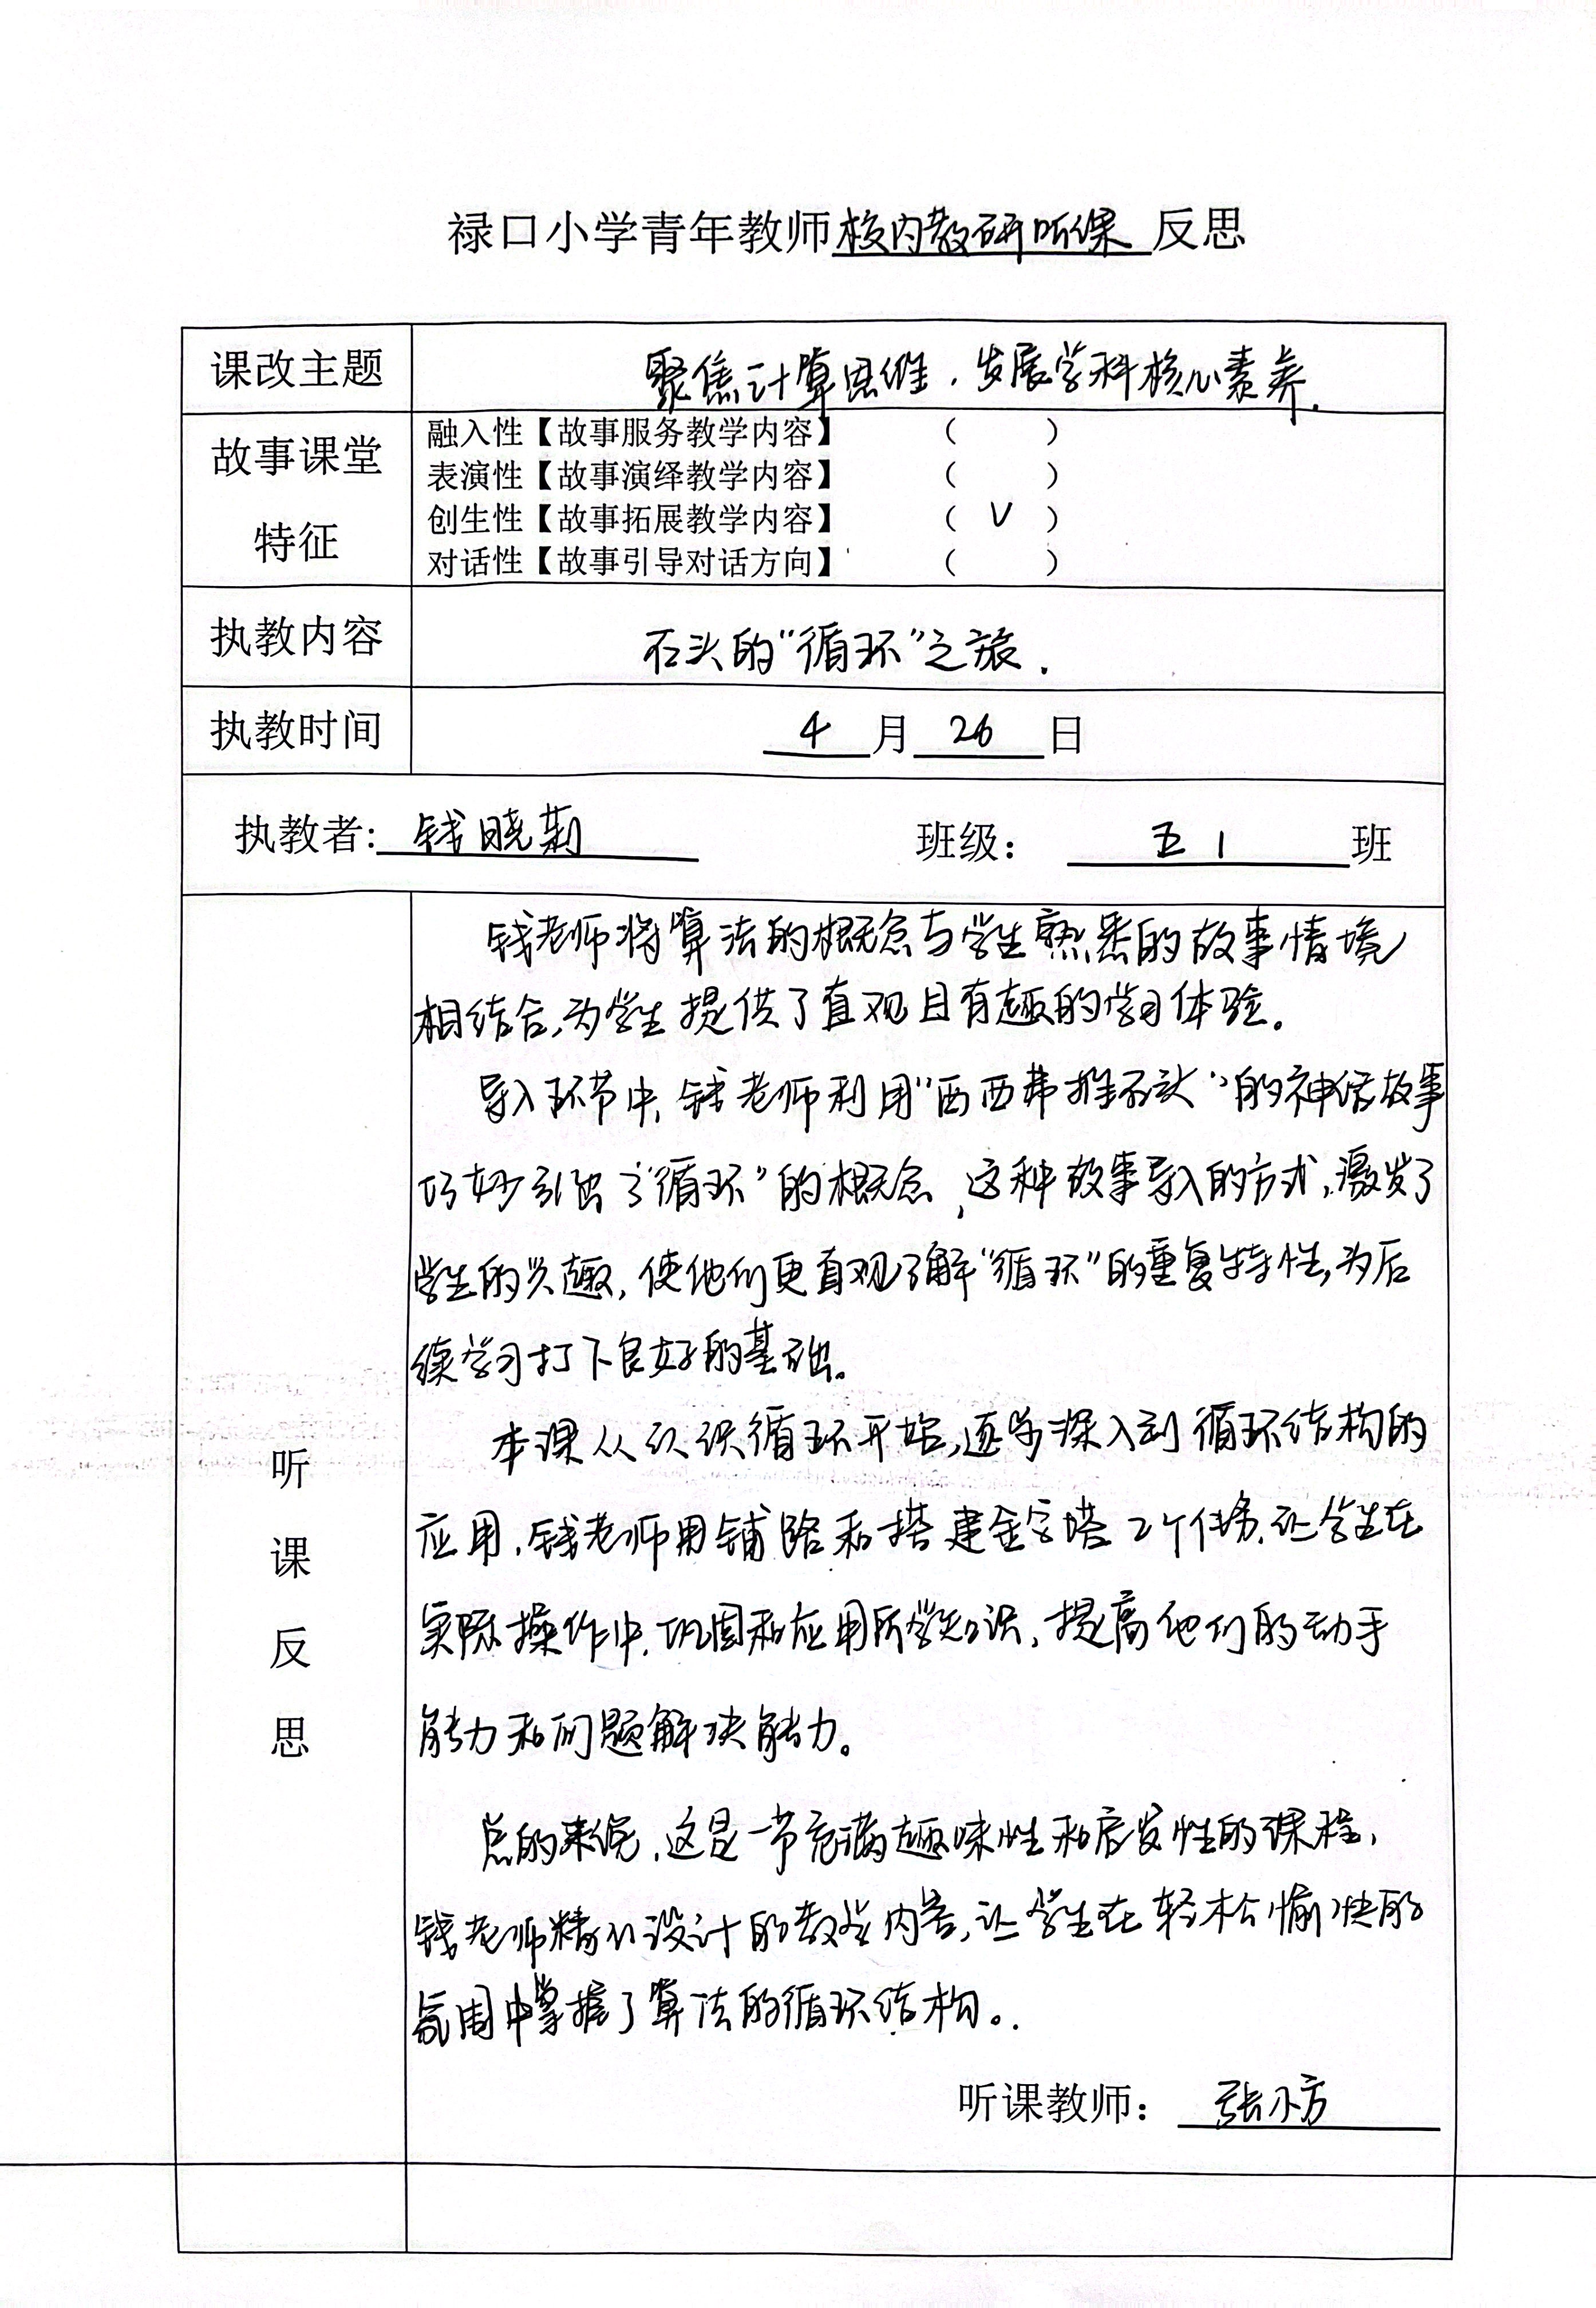 禄口小学青年教师校内教研听课反思
课改主题 聚焦计算思维，发展学科核心素养.
故事课堂特征
融入性【故事服务教学内容】 （ ）
表演性【故事演绎教学内容】 （ ）
创生性【故事拓展教学内容】 （ √ ）
对话性【故事引导对话方向】 （ ）
执教内容 石头的“循环”之旅.
执教时间 4 月 26 日
执教者: 钱晓莉 班级： 五1 班
听课反思
钱老师将算法的概念与学生熟悉的故事情境
相结合,为学生提供了直观且有趣的学习体验。
导入环节中,钱老师利用“西西弗推石头”的神话故事
巧妙引出了“循环”的概念,这种故事导入的方式,激发了
学生的兴趣,使他们更直观了解“循环”的重复特性,为后
续学习打下良好的基础。
本课从认识循环开始,逐步深入到循环结构的
应用,钱老师用铺路和搭建金字塔2个任务,让学生在
实际操作中,巩固和应用所学知识,提高他们的动手
能力和问题解决能力。
总的来说,这是一节充满趣味性和启发性的课程,
钱老师精心设计的教学内容,让学生在轻松愉快的
氛围中掌握了算法的循环结构。
听课教师： 张小方